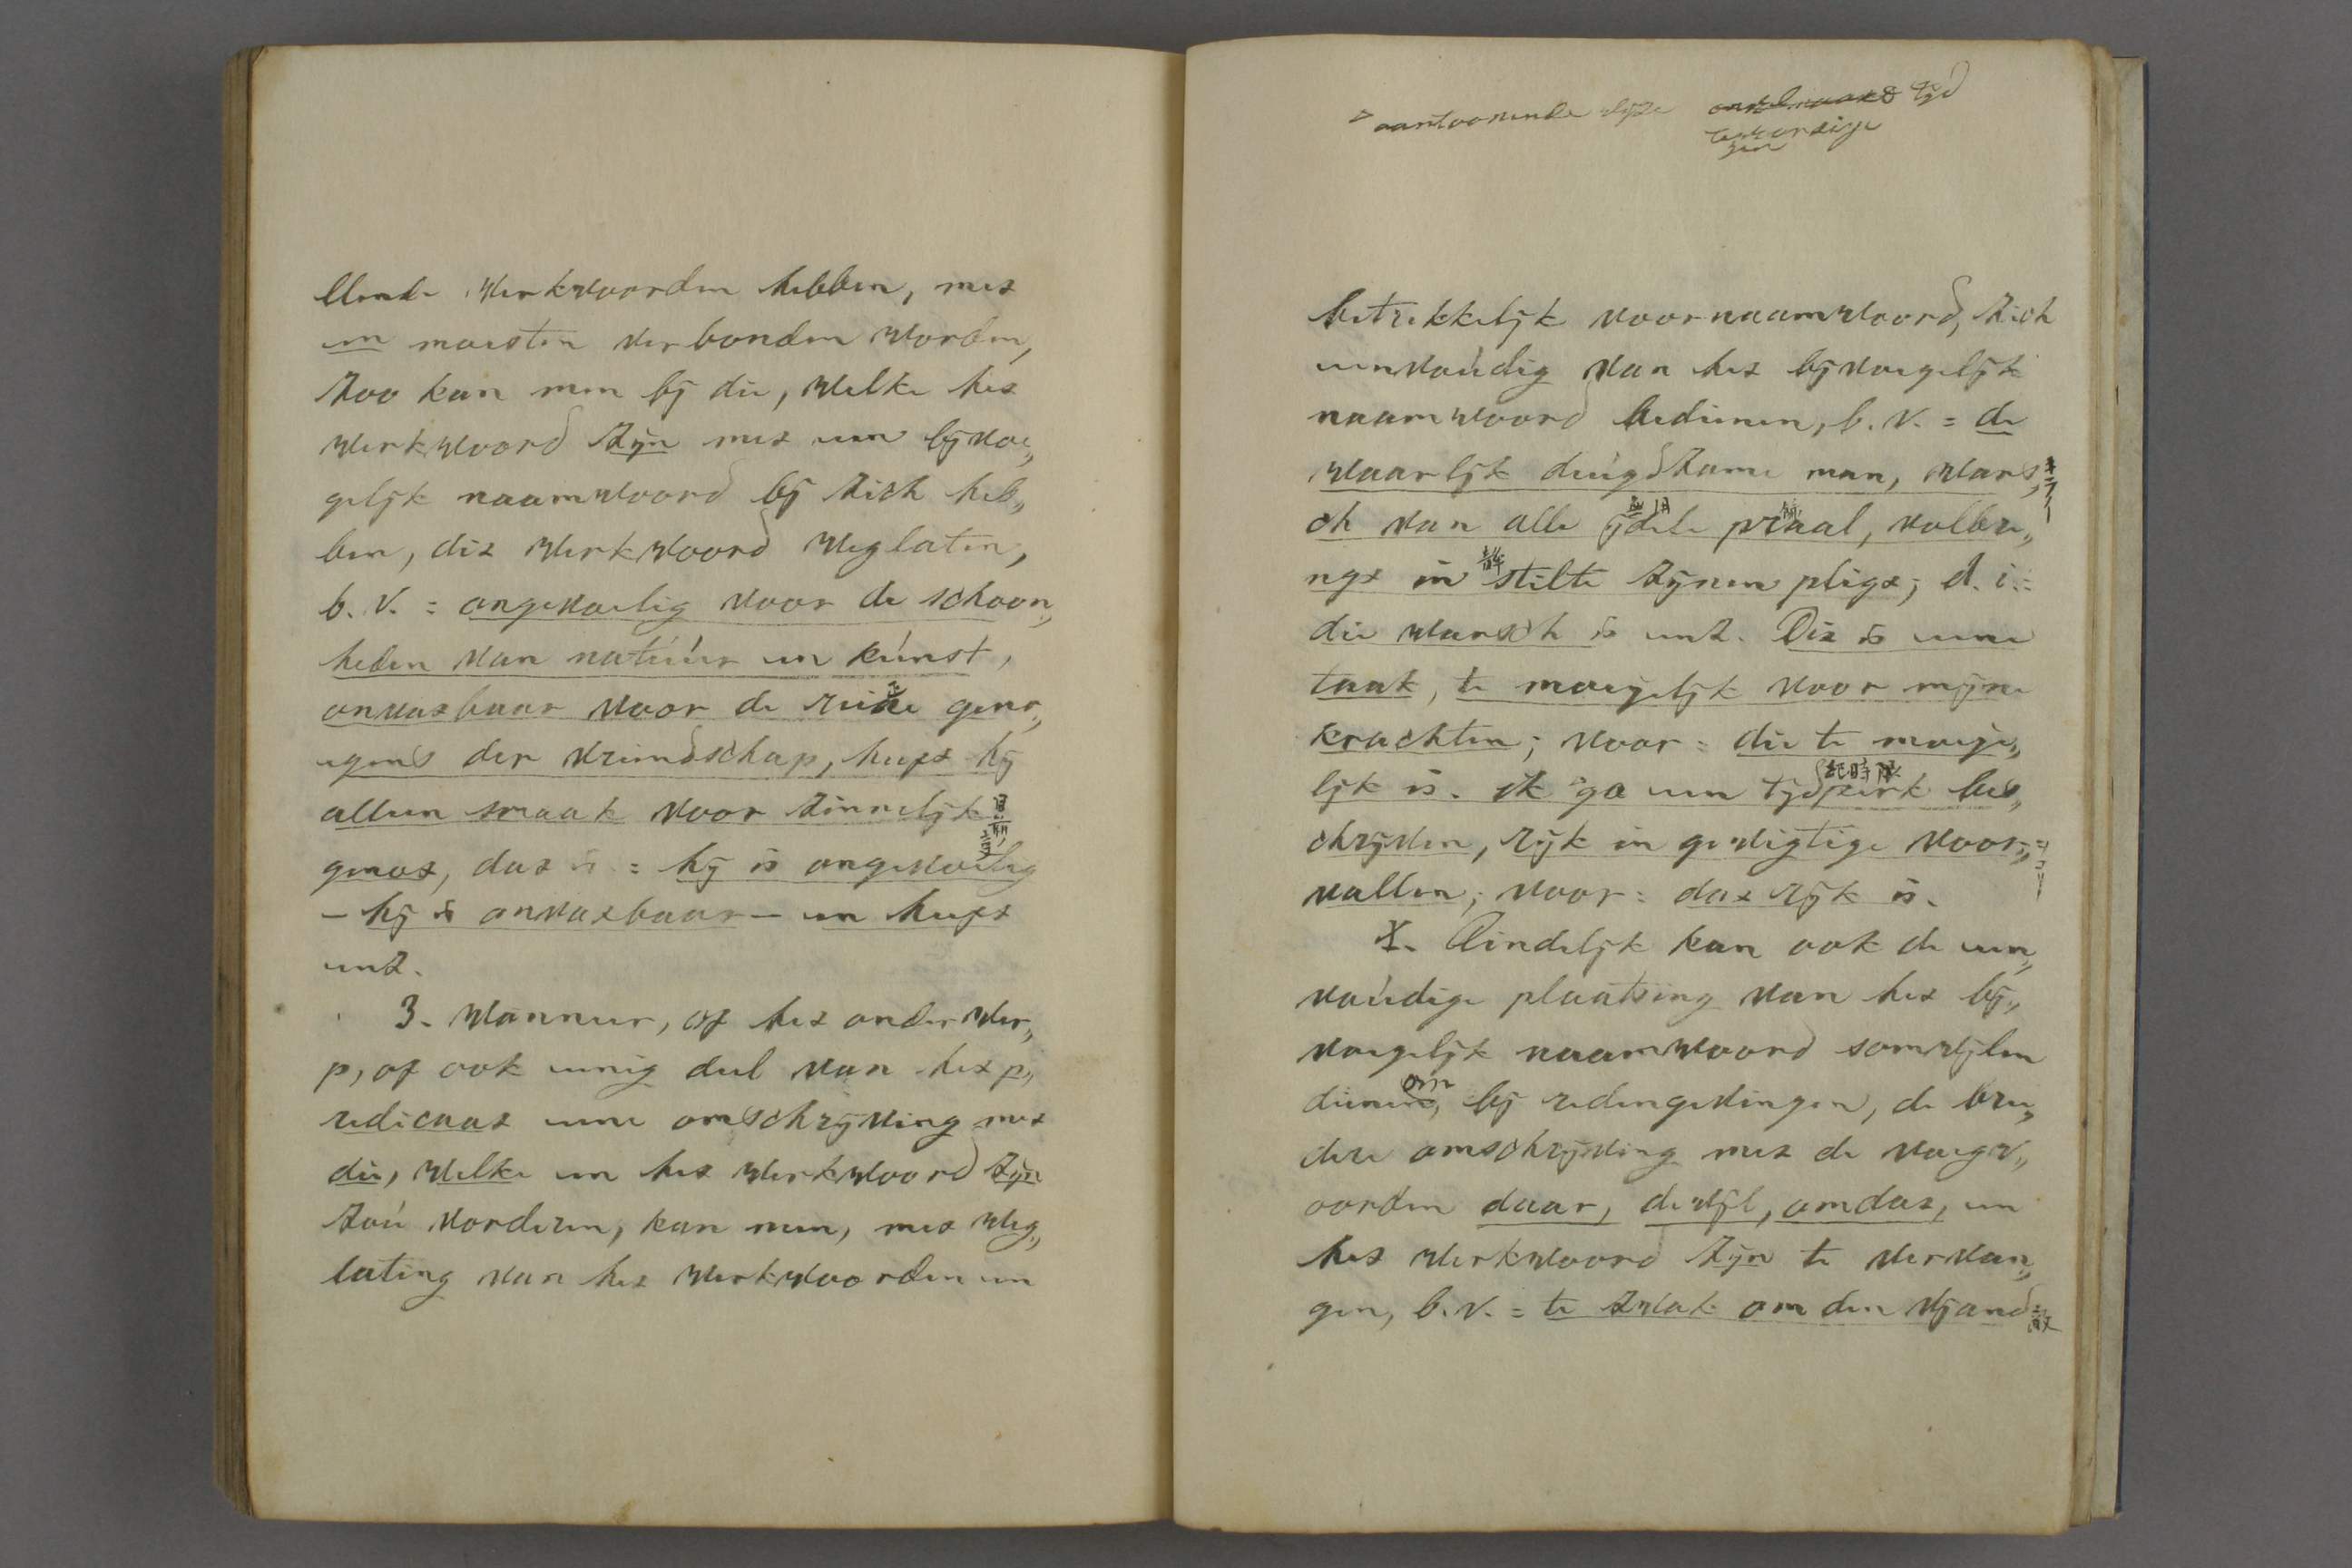 llende werkwoorden hebben, met
en moesten verbonden worden,
zoo kan men bij die, welke het
werkwoord zijn met een bijvoe„
gelijk naamwoord bij zich heb„
ben, dit werkwoord weglaten,
b. v. = ongevoelig voor de schoon„
heden van natúúr en kúnst,
onvatbaar voor de reine geno„
egens der vriendschap, heeft hij
alleen smaak voor zinnelijk
genot, dat is = hij is ongevoelig
– hij is onvatbaar – en heeft
enz.
3. Wanneer, of het onderwer„
p, of ook eenig deel van het p„
redicaat eene omschrijving met
die, welke en het werkwoord zijn
zoú vorderen, kan men, met weg„
lating van het werkwoorden en
aantoonende wijze onvolmaakt tijd
tegenwoordige
betrekkelijk voornaamwoord, zich
eenvoúdig van het bijvoegelijk
naamwoord bedienen, b. v. = de
waarlijk deúgdzame man, wars„
ch van alle ijdele praal, volbre„
ngt in stilte zijnen pligt; d. i. =
die warsch is enz. Dit is eene
taak, te moeijelijk voor mijne
krachten; voor = die te moeije„
lijk is. ik ga een tijdperk bes„
chrijven, rijk in gewigtige voor„
vallen; voor = dat rijk is.
4. Eindelijk kan ook de een„
voúdige plaatsing van het bij„
voegelijk naamwoord somwijlen
dienen, om bij redengevingen, de bre„
dere omschrijving met de voegw„
oorden daar, dewijl, omdat, en
het werkwoord zijn te vervan„
gen, b. v. = te zwak om den vijand